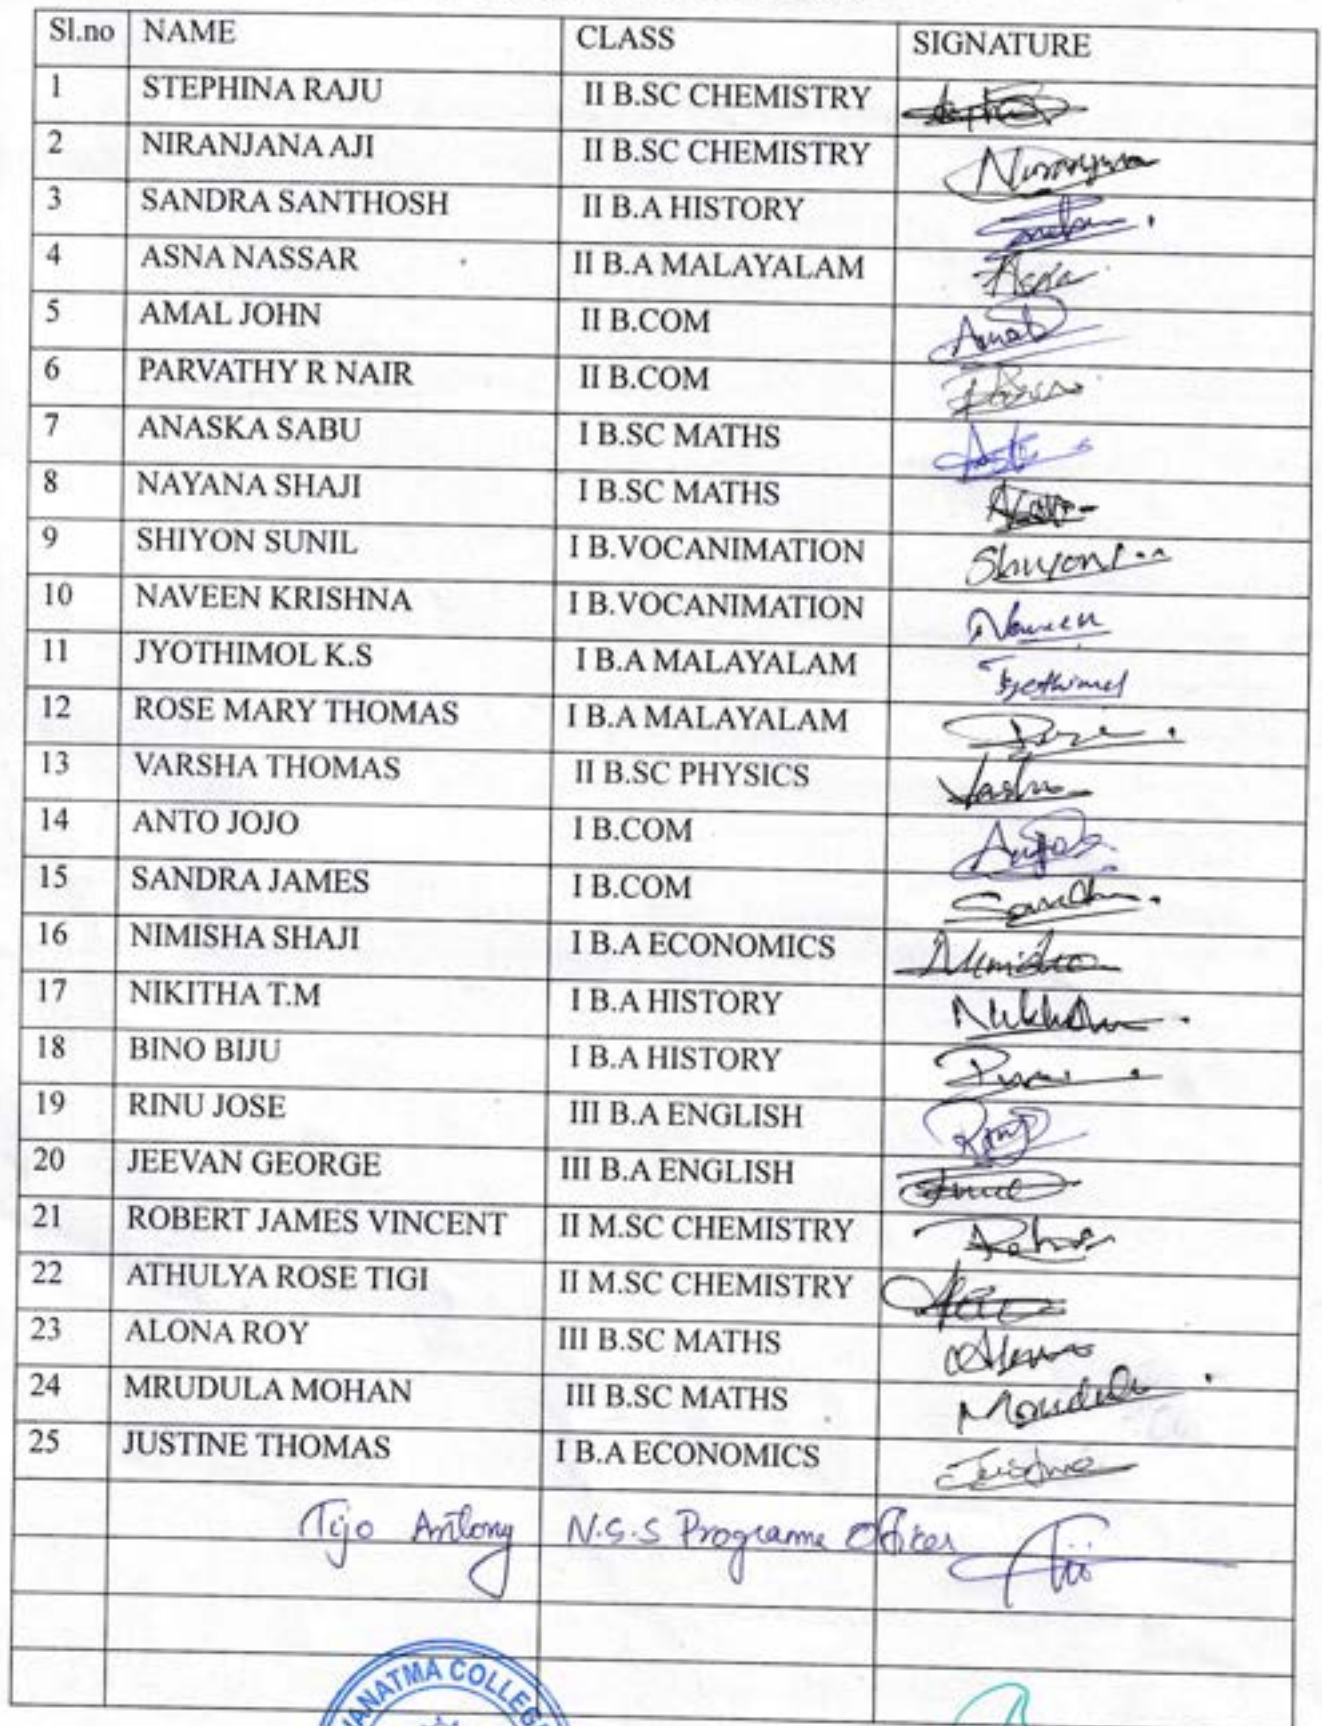 Sl.no NAME CLASS SIGNATURE
1 STEPHINA RAJU II B.SC CHEMISTRY
2 NIRANJANA AJI II B.SC CHEMISTRY Niranjana
3 SANDRA SANTHOSH II B.A HISTORY
4 ASNA NASSAR II B.A MALAYALAM Asna
5 AMAL JOHN II B.COM Amal
6 PARVATHY R NAIR II B.COM
7 ANASKA SABU I B.SC MATHS
8 NAYANA SHAJI I B.SC MATHS
9 SHIYON SUNIL I B.VOCANIMATION Shiyon
10 NAVEEN KRISHNA I B.VOCANIMATION Naveen
11 JYOTHIMOL K.S I B.A MALAYALAM Jyothimol
12 ROSE MARY THOMAS I B.A MALAYALAM
13 VARSHA THOMAS II B.SC PHYSICS
14 ANTO JOJO I B.COM
15 SANDRA JAMES I B.COM Sandra
16 NIMISHA SHAJI I B.A ECONOMICS Nimisha
17 NIKITHA T.M I B.A HISTORY
18 BINO BIJU I B.A HISTORY
19 RINU JOSE III B.A ENGLISH
20 JEEVAN GEORGE III B.A ENGLISH
21 ROBERT JAMES VINCENT II M.SC CHEMISTRY
22 ATHULYA ROSE TIGI II M.SC CHEMISTRY
23 ALONA ROY III B.SC MATHS Alona
24 MRUDULA MOHAN III B.SC MATHS
25 JUSTINE THOMAS I B.A ECONOMICS Justine
Tijo Antony N.S.S Programe Officer
JANATMA COLLEGE